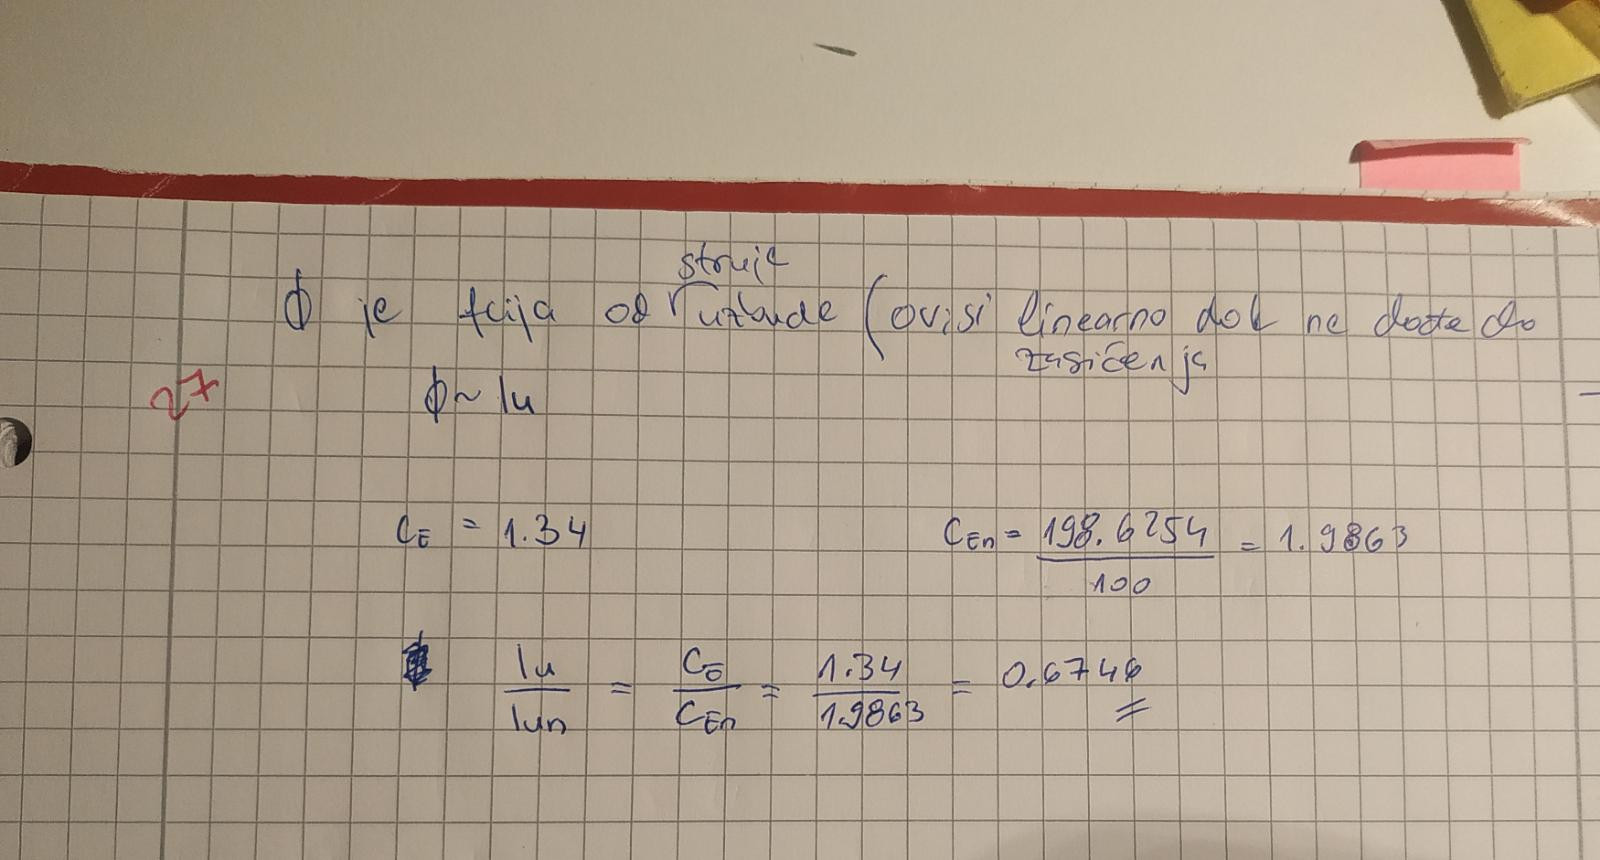 struje
Φ je fcija od uzbude (ovisi linearno dok ne dođe do
zasićenja
27
Φ ~ Iu
CE = 1.34
CEn = 198.6254 / 100 = 1.9863
Iu / Iun = CE / CEn = 1.34 / 1.9863 = 0.6746